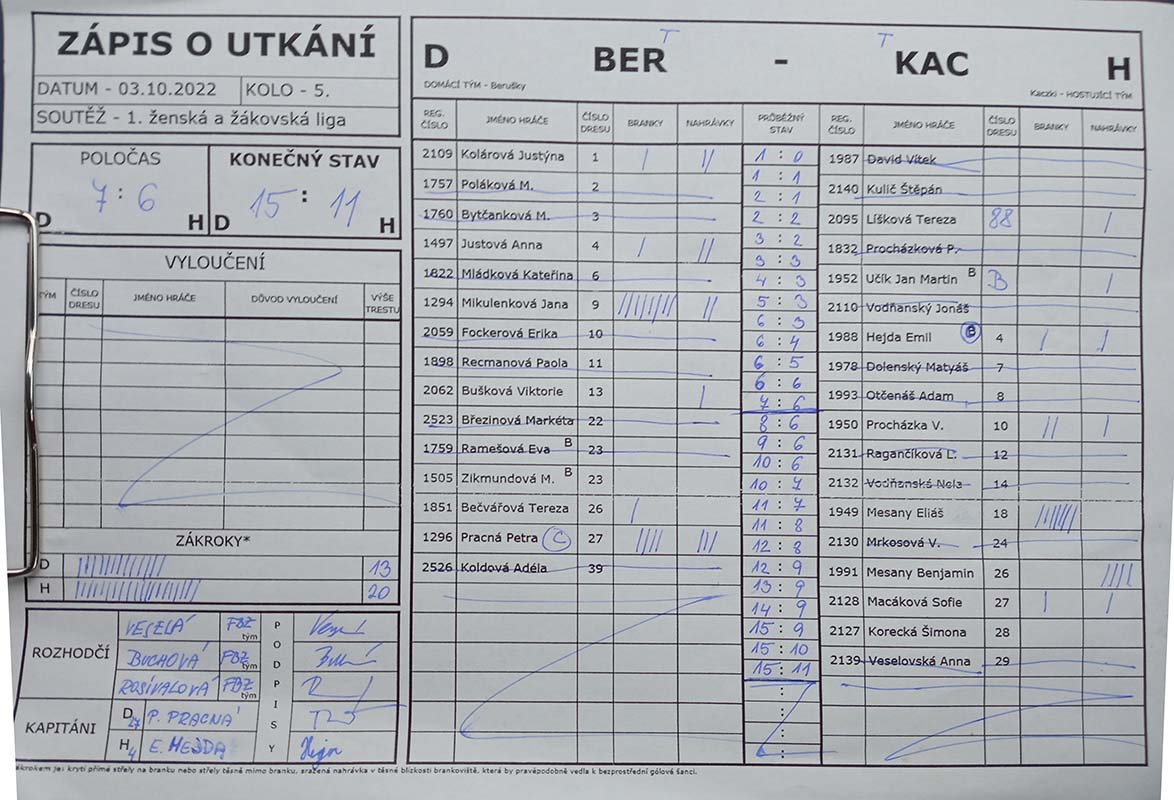 ZÁPIS O UTKÁNÍ
DATUM - 03.10.2022 KOLO - 5.
SOUTĚŽ - 1. ženská a žákovská liga
POLOČAS KONEČNÝ STAV
7 : 6 15 : 11
D H D H
VYLOUČENÍ
TÝM ČÍSLO DRESU JMÉNO HRÁČE DŮVOD VYLOUČENÍ VÝŠE TRESTU
ZÁKROKY*
D 13
H 20
ROZHODČÍ
VESELÁ FBŽ tým
BUCHOVÁ FBŽ tým
ROSÍVALOVÁ FBŽ tým
PODPISY
KAPITÁNI
D 27 P. PRACNÁ
H 4 E. HEJDA
T T
D BER - KAC H
DOMÁCÍ TÝM - Berušky Kaczki - HOSTUJÍCÍ TÝM
REG. ČÍSLO JMÉNO HRÁČE ČÍSLO DRESU BRANKY NAHRÁVKY PRŮBĚŽNÝ STAV REG. ČÍSLO JMÉNO HRÁČE ČÍSLO DRESU BRANKY NAHRÁVKY
2109 Kolárová Justýna 1 | ||
1757 Poláková M. 2
1760 Bytčanková M. 3
1497 Justová Anna 4 | ||
1822 Mládková Kateřina 6
1294 Mikulenková Jana 9 |||||||| ||
2059 Fockerová Erika 10
1898 Recmanová Paola 11
2062 Bušková Viktorie 13 |
2523 Březinová Markéta 22
1759 Ramešová Eva B 23
1505 Zikmundová M. B 23
1851 Bečvářová Tereza 26 |
1296 Pracná Petra C 27 |||| |||
2526 Koldová Adéla 39
1 : 0
1 : 1
2 : 1
2 : 2
3 : 2
3 : 3
4 : 3
5 : 3
6 : 3
6 : 4
6 : 5
6 : 6
7 : 6
8 : 6
9 : 6
10 : 6
10 : 7
11 : 7
11 : 8
12 : 8
12 : 9
13 : 9
14 : 9
15 : 9
15 : 10
15 : 11
:
:
:
:
1987 David Vítek
2140 Kulič Štěpán
2095 Líšková Tereza 88 |
1832 Procházková P.
1952 Učík Jan Martin B B |
2110 Vodňanský Jonáš
1988 Hejda Emil B 4 | |
1978 Dolenský Matyáš 7
1993 Otčenáš Adam 8
1950 Procházka V. 10 || |
2131 Ragančíková L. 12
2132 Vodňanská Nela 14
1949 Mesany Eliáš 18
2130 Mrkosová V. 24
1991 Mesany Benjamin 26 ||||
2128 Macáková Sofie 27 | |
2127 Korecká Šimona 28
2139 Veselovská Anna 29
ákrokem jes krytí přímé střely na branku nebo střely těsně mimo branku, sražená nahrávka v těsné blízkosti brankoviště, která by pravěpodobně vedla k bezprostřední gólové šanci.